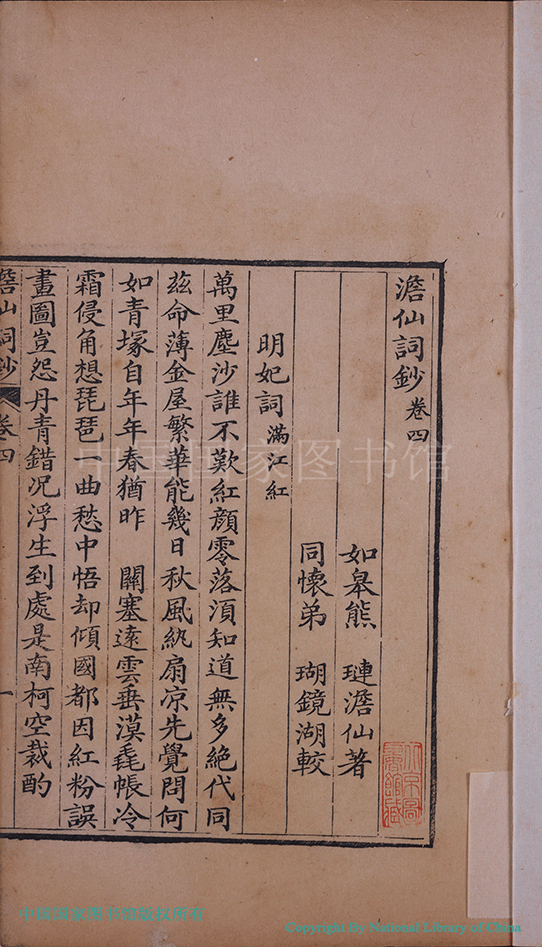 澹仙詞鈔 卷四
如皋熊 璉澹仙著
同懷弟 瑚鏡湖較
明妃詞 滿江紅
萬里塵沙誰不歎紅顔零落湏知道無多絶代同
兹命薄金屋繁華能幾日秋風紈扇凉先覺問何
如青塚自年年春猶昨 關塞遠雲垂漠毳帳冷
霜侵角想琵琶一曲愁中悟却傾國都因紅粉誤
畫圖豈怨丹青錯况浮生到處是南柯空裁酌
澹仙詞鈔 卷四 一
中国国家图书馆
中国国家图书馆版权所有
Copyright By National Library of China